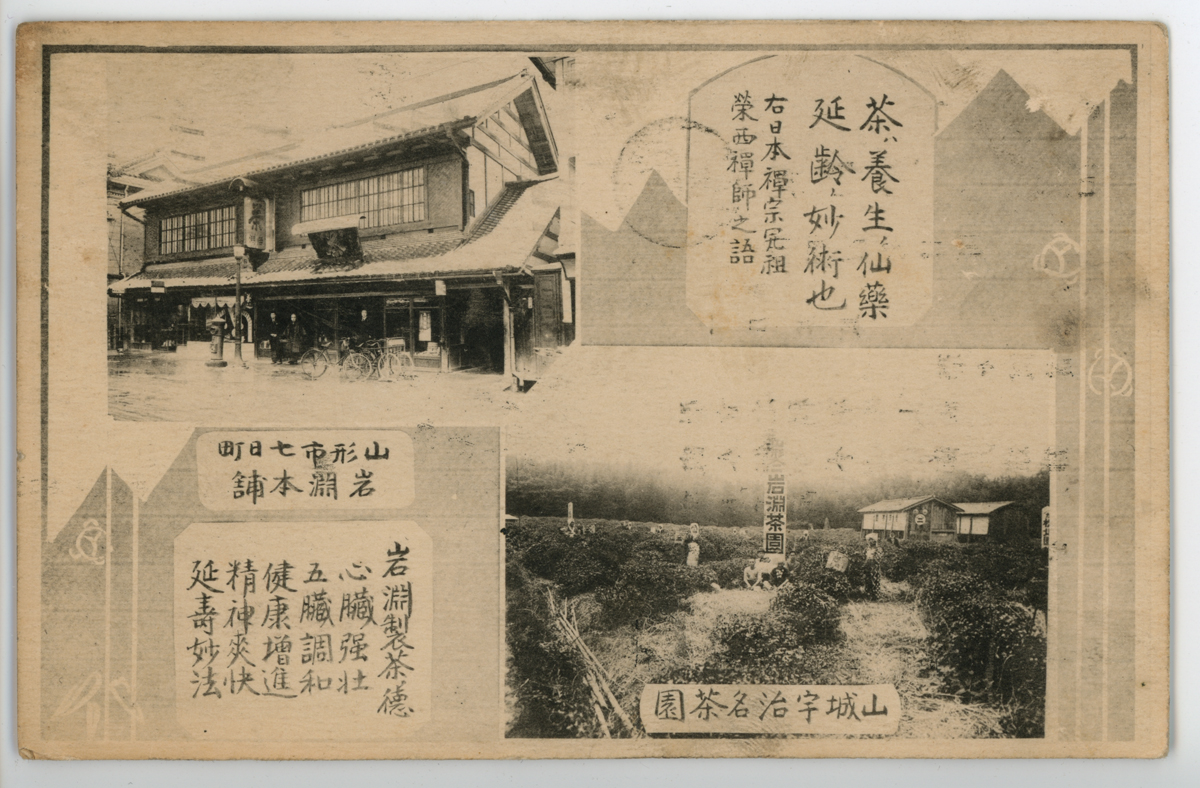 茶ハ養生ノ仙藥
延齡ノ妙術也
右日本禪宗元祖
榮西禪師之語
山形市七日町
岩淵本舖
岩淵製茶德
心臟强壯
五臟調和
健康增進
精神爽快
延壽妙法
岩淵茶園
山城宇治名茶園